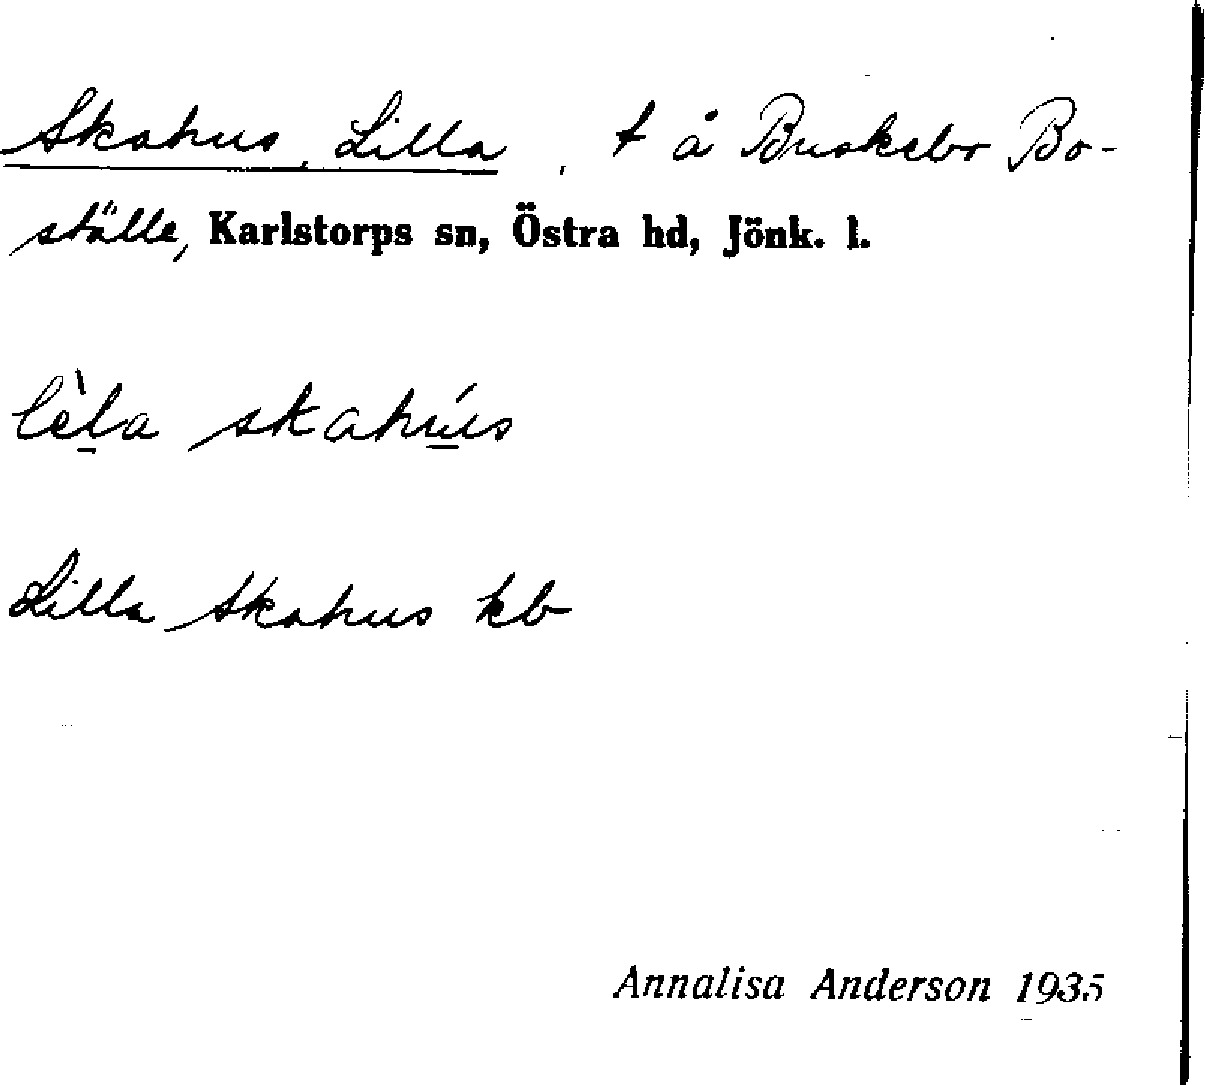 Skahus, Lilla, t å Buskebo Bo-
ställe, Karlstorps sn, Östra hd, Jönk. l.
lèla skahús
Lilla Skahus kb
Annalisa Anderson 1935